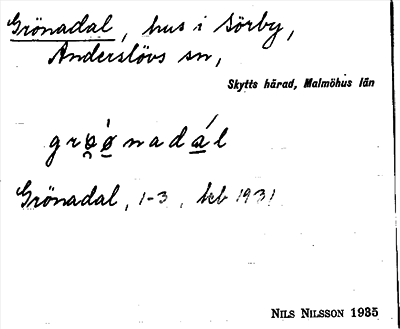 Grönadal, hus i Sörby,
Anderslövs sn,
Skytts härad, Malmöhus län
Grönadal, 1-3, 1931
NILS NILSSON 1935